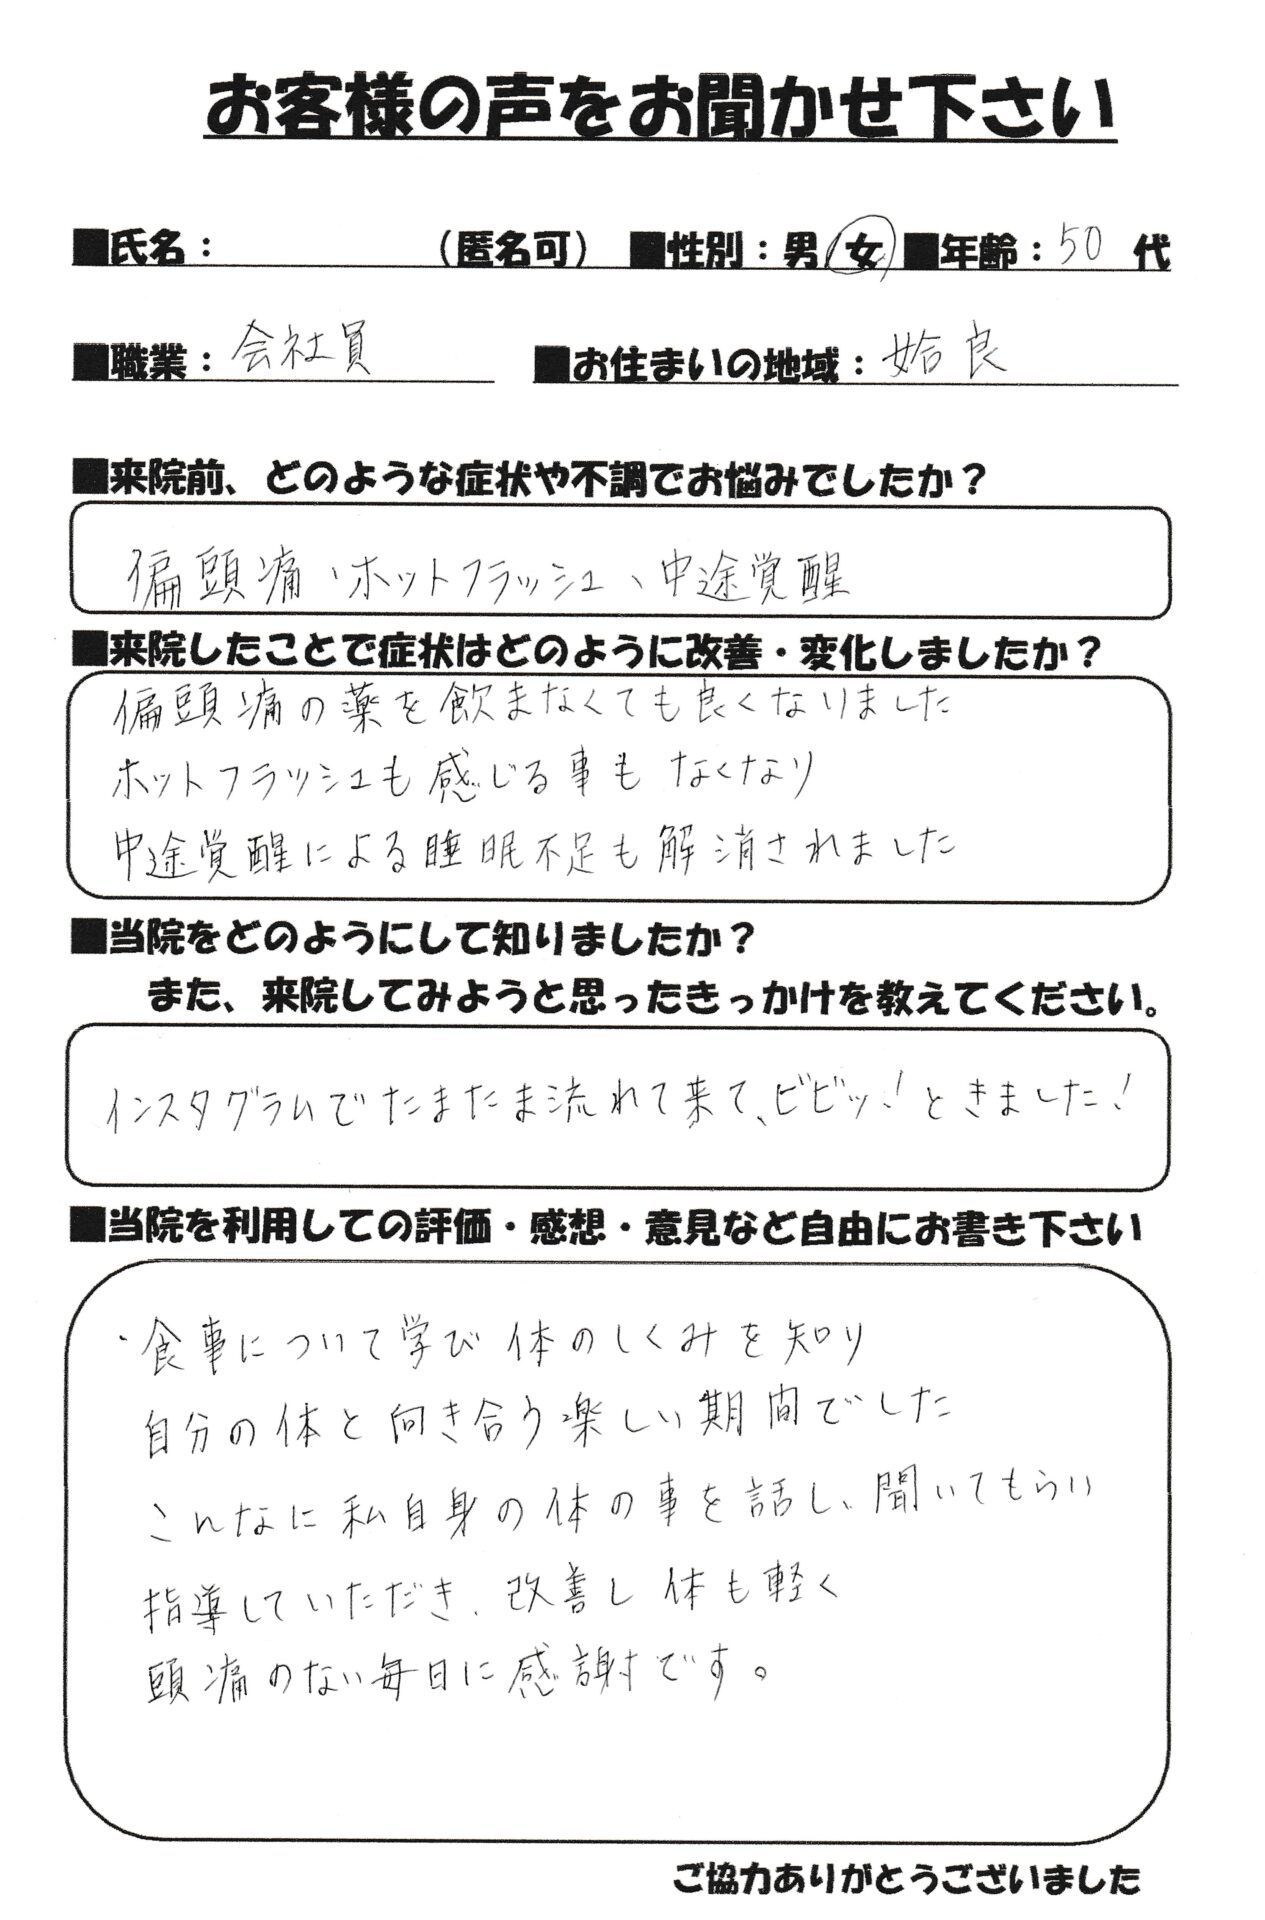 お客様の声をお聞かせ下さい
■氏名： （匿名可） ■性別：男 女 ■年齢：50 代
■職業：会社員 ■お住まいの地域：姶良
■来院前、どのような症状や不調でお悩みでしたか？
偏頭痛、ホットフラッシュ、中途覚醒
■来院したことで症状はどのように改善・変化しましたか？
偏頭痛の薬を飲まなくても良くなりました
ホットフラッシュも感じる事もなくなり
中途覚醒による睡眠不足も解消されました
■当院をどのようにして知りましたか？
また、来院してみようと思ったきっかけを教えてください。
インスタグラムでたまたま流れて来て、ビビッ！ときました！
■当院を利用しての評価・感想・意見など自由にお書き下さい
・食事について学び体のしくみを知り
自分の体と向き合う楽しい期間でした
こんなに私自身の体の事を話し、聞いてもらい
指導していただき、改善し体も軽く
頭痛のない毎日に感謝です。
ご協力ありがとうございました